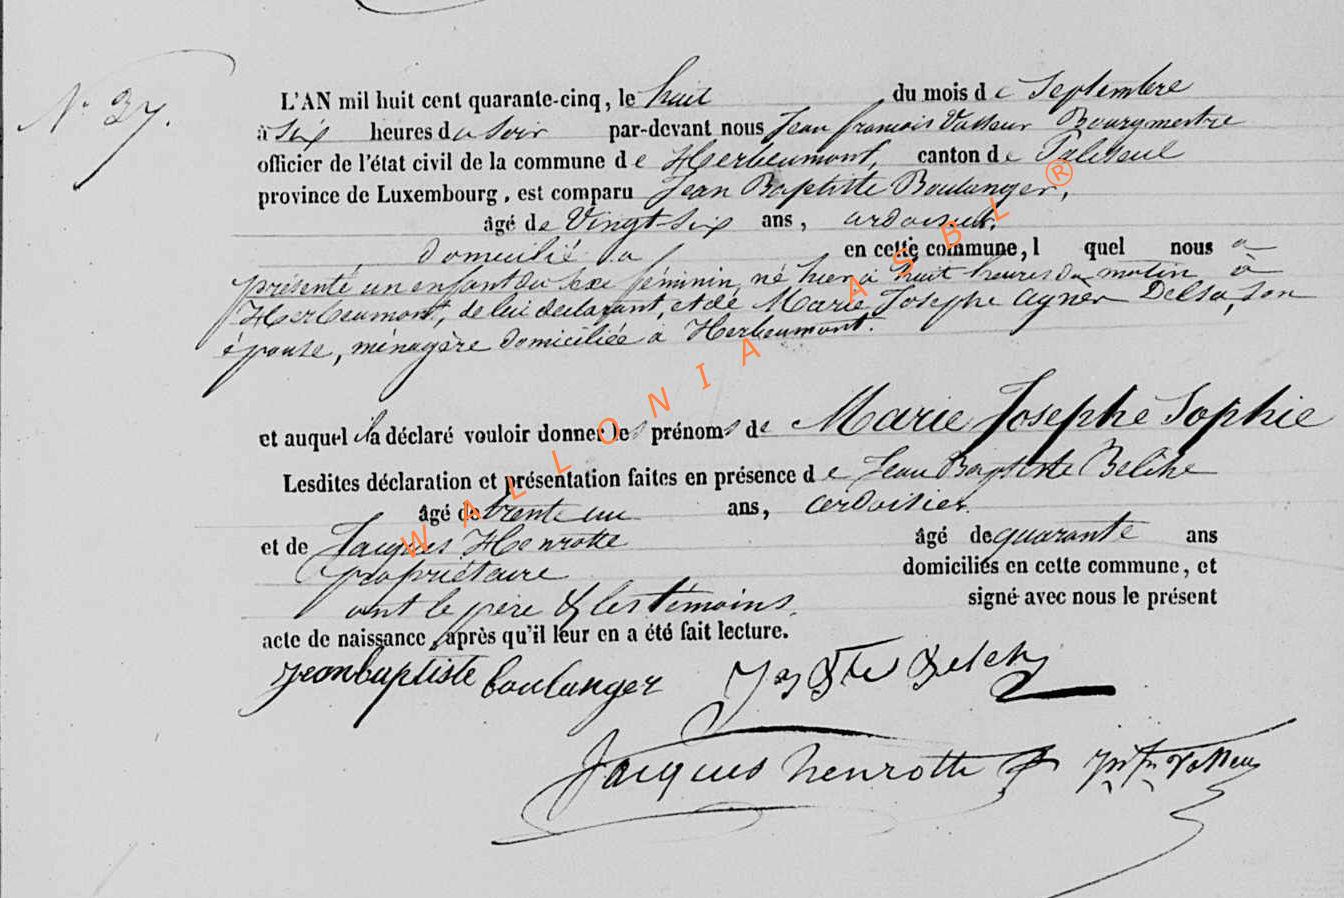 N° 37.
L'AN mil huit cent quarante-cinq, le huit du mois de Septembre
à Six heures du Soir par-devant nous Jean francois Vasseur Bourgmestre
officier de l'état civil de la commune de Herbeumont, canton de Paliseul
province de Luxembourg, est comparu Jean Baptiste Boulanger,
âgé de Vingt-Six ans, ardoisier,
domicilié a en cette commune, l quel nous a
présenté un enfant du Sexe féminin, né hier à huit heures du matin, à
Herbeumont, de lui déclarant, et de Marie Josephe Agnès Delsa, Son
épouse, ménagère domiciliée à Herbeumont.
et auquel il a déclaré vouloir donner les prénoms de Marie Josephe Sophie
Lesdites déclaration et présentation faites en présence de Jean Baptiste
âgé de trente un ans, ardoisier.
et de Jacques Henrotte âgé de quarante ans
propriétaire domiciliés en cette commune, et
ont le père & les témoins, signé avec nous le présent
acte de naissance, après qu'il leur en a été fait lecture.
jean baptiste boulanger
Jacques henrotte
WALLONIA ASBL ®